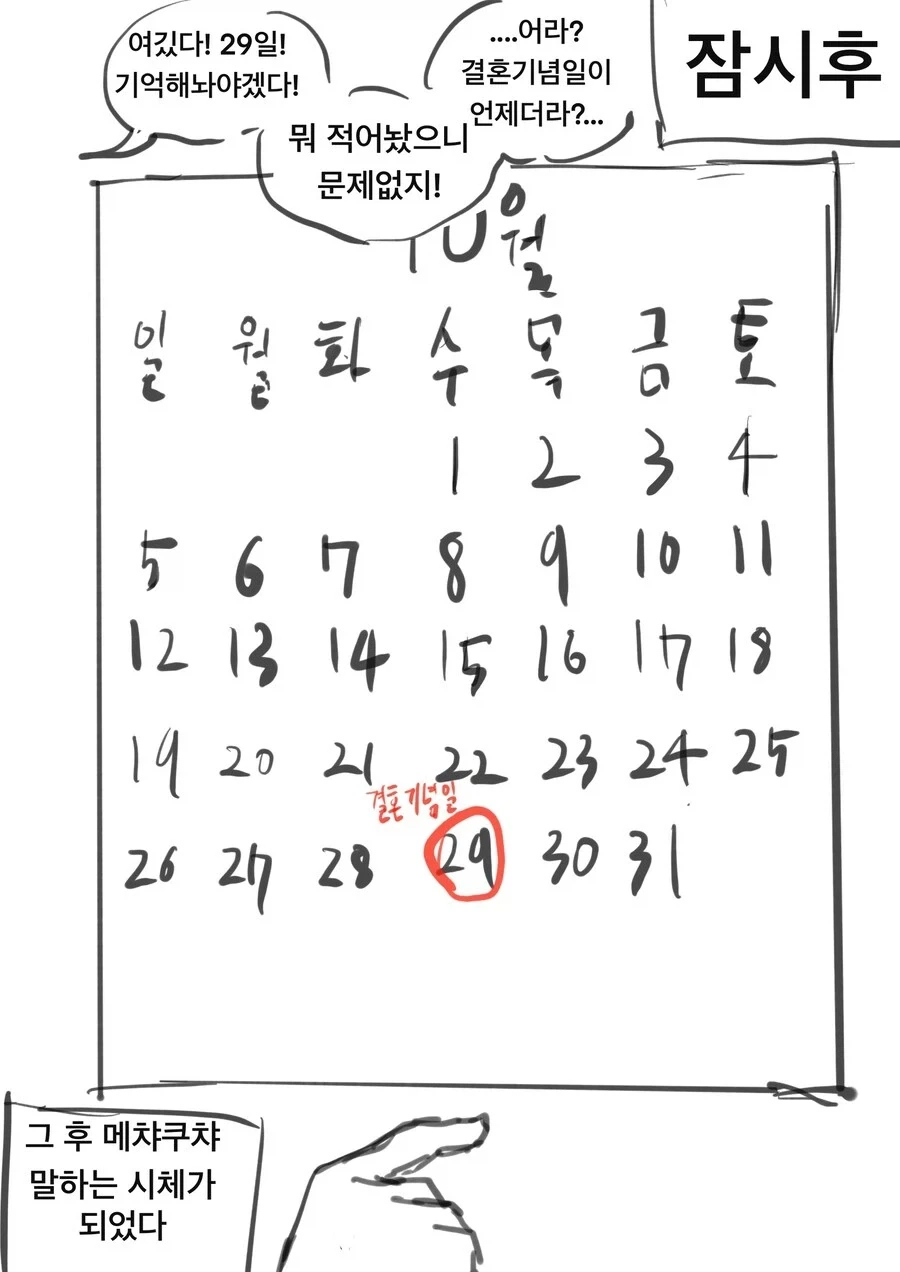 잠시후
....어라?
결혼기념일이
언제더라?...
뭐 적어놨으니
문제없지!
여깄다! 29일!
기억해놔야겠다!
10월
일 월 화 수 목 금 토
1 2 3 4
5 6 7 8 9 10 11
12 13 14 15 16 17 18
19 20 21 22 23 24 25
결혼기념일
26 27 28 29 30 31
그 후 메챠쿠챠
말하는 시체가
되었다